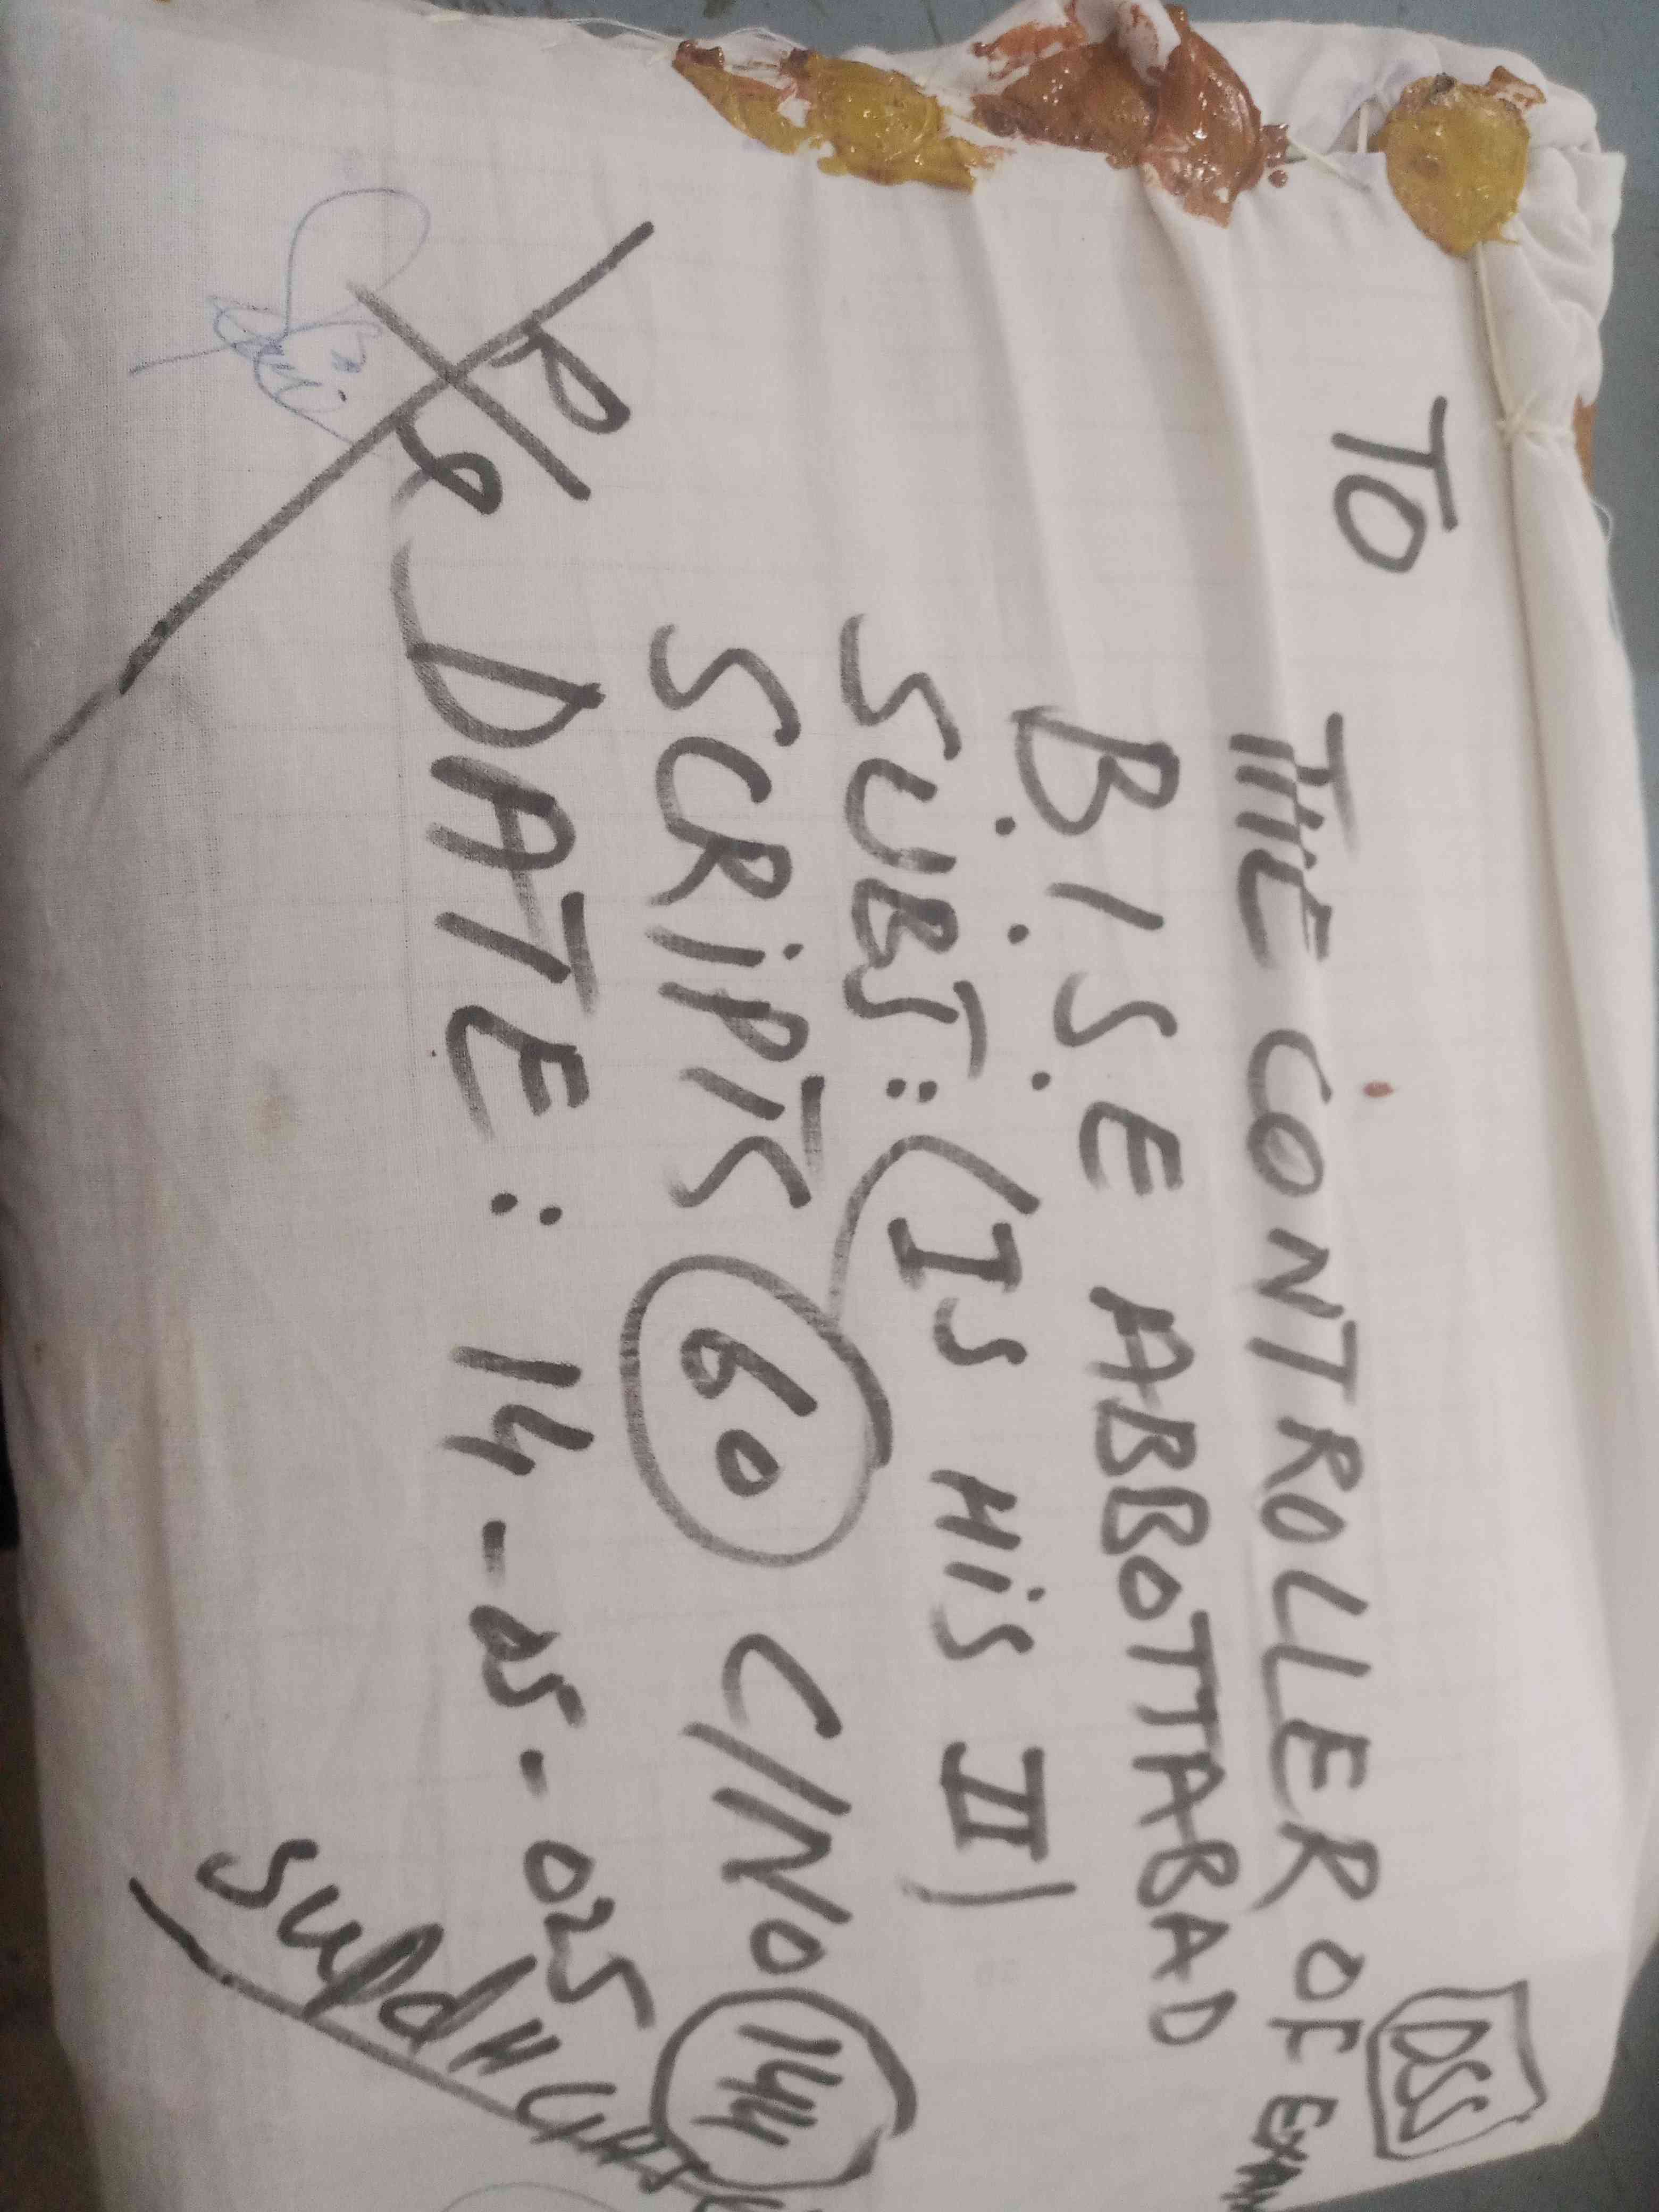 DSS
TO
THE CONTROLLER OF EXAM
B.I.S.E ABBOTTABAD
SUBJ: (IS HIS II)
SCRIPTS 60 C/NO 144
DATE: 14-05-025
Supdt GHS